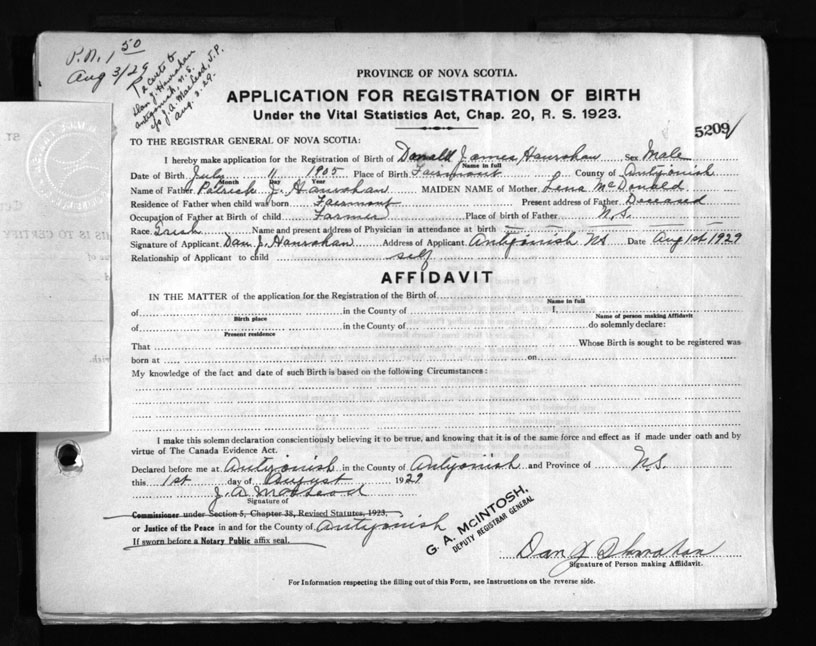 P.N. 1 50
Aug 3/29
2 certs to
Dan J. Hanrahan
Antigonish, N.S.
c/o J.A. MacLeod, J.P.
Aug. 3. 29.
PROVINCE OF NOVA SCOTIA.
APPLICATION FOR REGISTRATION OF BIRTH
Under the Vital Statistics Act, Chap. 20, R. S. 1923.
5209/
TO THE REGISTRAR GENERAL OF NOVA SCOTIA:
I hereby make application for the Registration of Birth of Donald James Hanrahan Sex Male
Name in full
Date of Birth July 11 1905 Place of Birth Fairmont County of Antigonish
Month Day Year
Name of Father Patrick J. Hanrahan MAIDEN NAME of Mother Lena McDonald
Residence of Father when child was born Fairmont Present address of Father Deceased
Occupation of Father at Birth of child Farmer Place of birth of Father N.S.
Race Irish Name and present address of Physician in attendance at birth
Signature of Applicant Dan J. Hanrahan Address of Applicant Antigonish NS Date Aug 1st 1929
Relationship of Applicant to child self
AFFIDAVIT
IN THE MATTER of the application for the Registration of the Birth of
Name in full
of in the County of I,
Birth place Name of person making Affidavit
of in the County of do solemnly declare:
Present residence
That Whose Birth is sought to be registered was
born at on
My knowledge of the fact and date of such Birth is based on the following Circumstances:
I make this solemn declaration conscientiously believing it to be true, and knowing that it is of the same force and effect as if made under oath and by
virtue of The Canada Evidence Act.
Declared before me at Antigonish in the County of Antigonish and Province of N.S.
this 1st day of August 1929
J. A. MacLeod
Signature of
Commissioner under Section 5, Chapter 38, Revised Statutes, 1923,
or Justice of the Peace in and for the County of Antigonish
If sworn before a Notary Public affix seal.
G. A. McINTOSH,
DEPUTY REGISTRAR GENERAL
Dan J
Signature of Person making Affidavit.
For Information respecting the filling out of this Form, see Instructions on the reverse side.